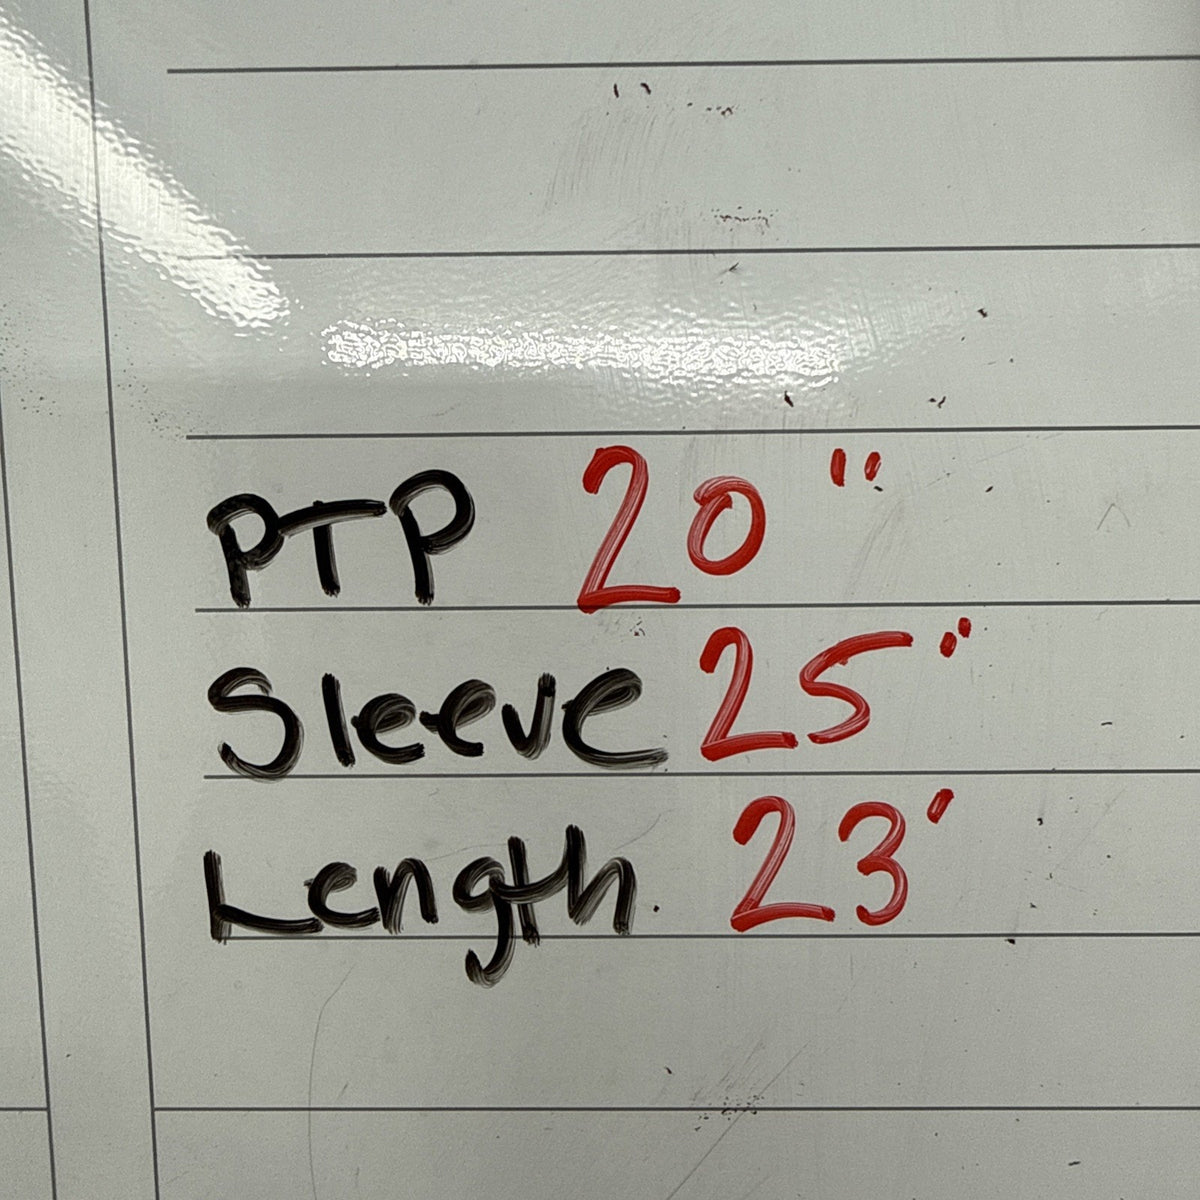 PTP 20"
Sleeve 25"
Length 23'